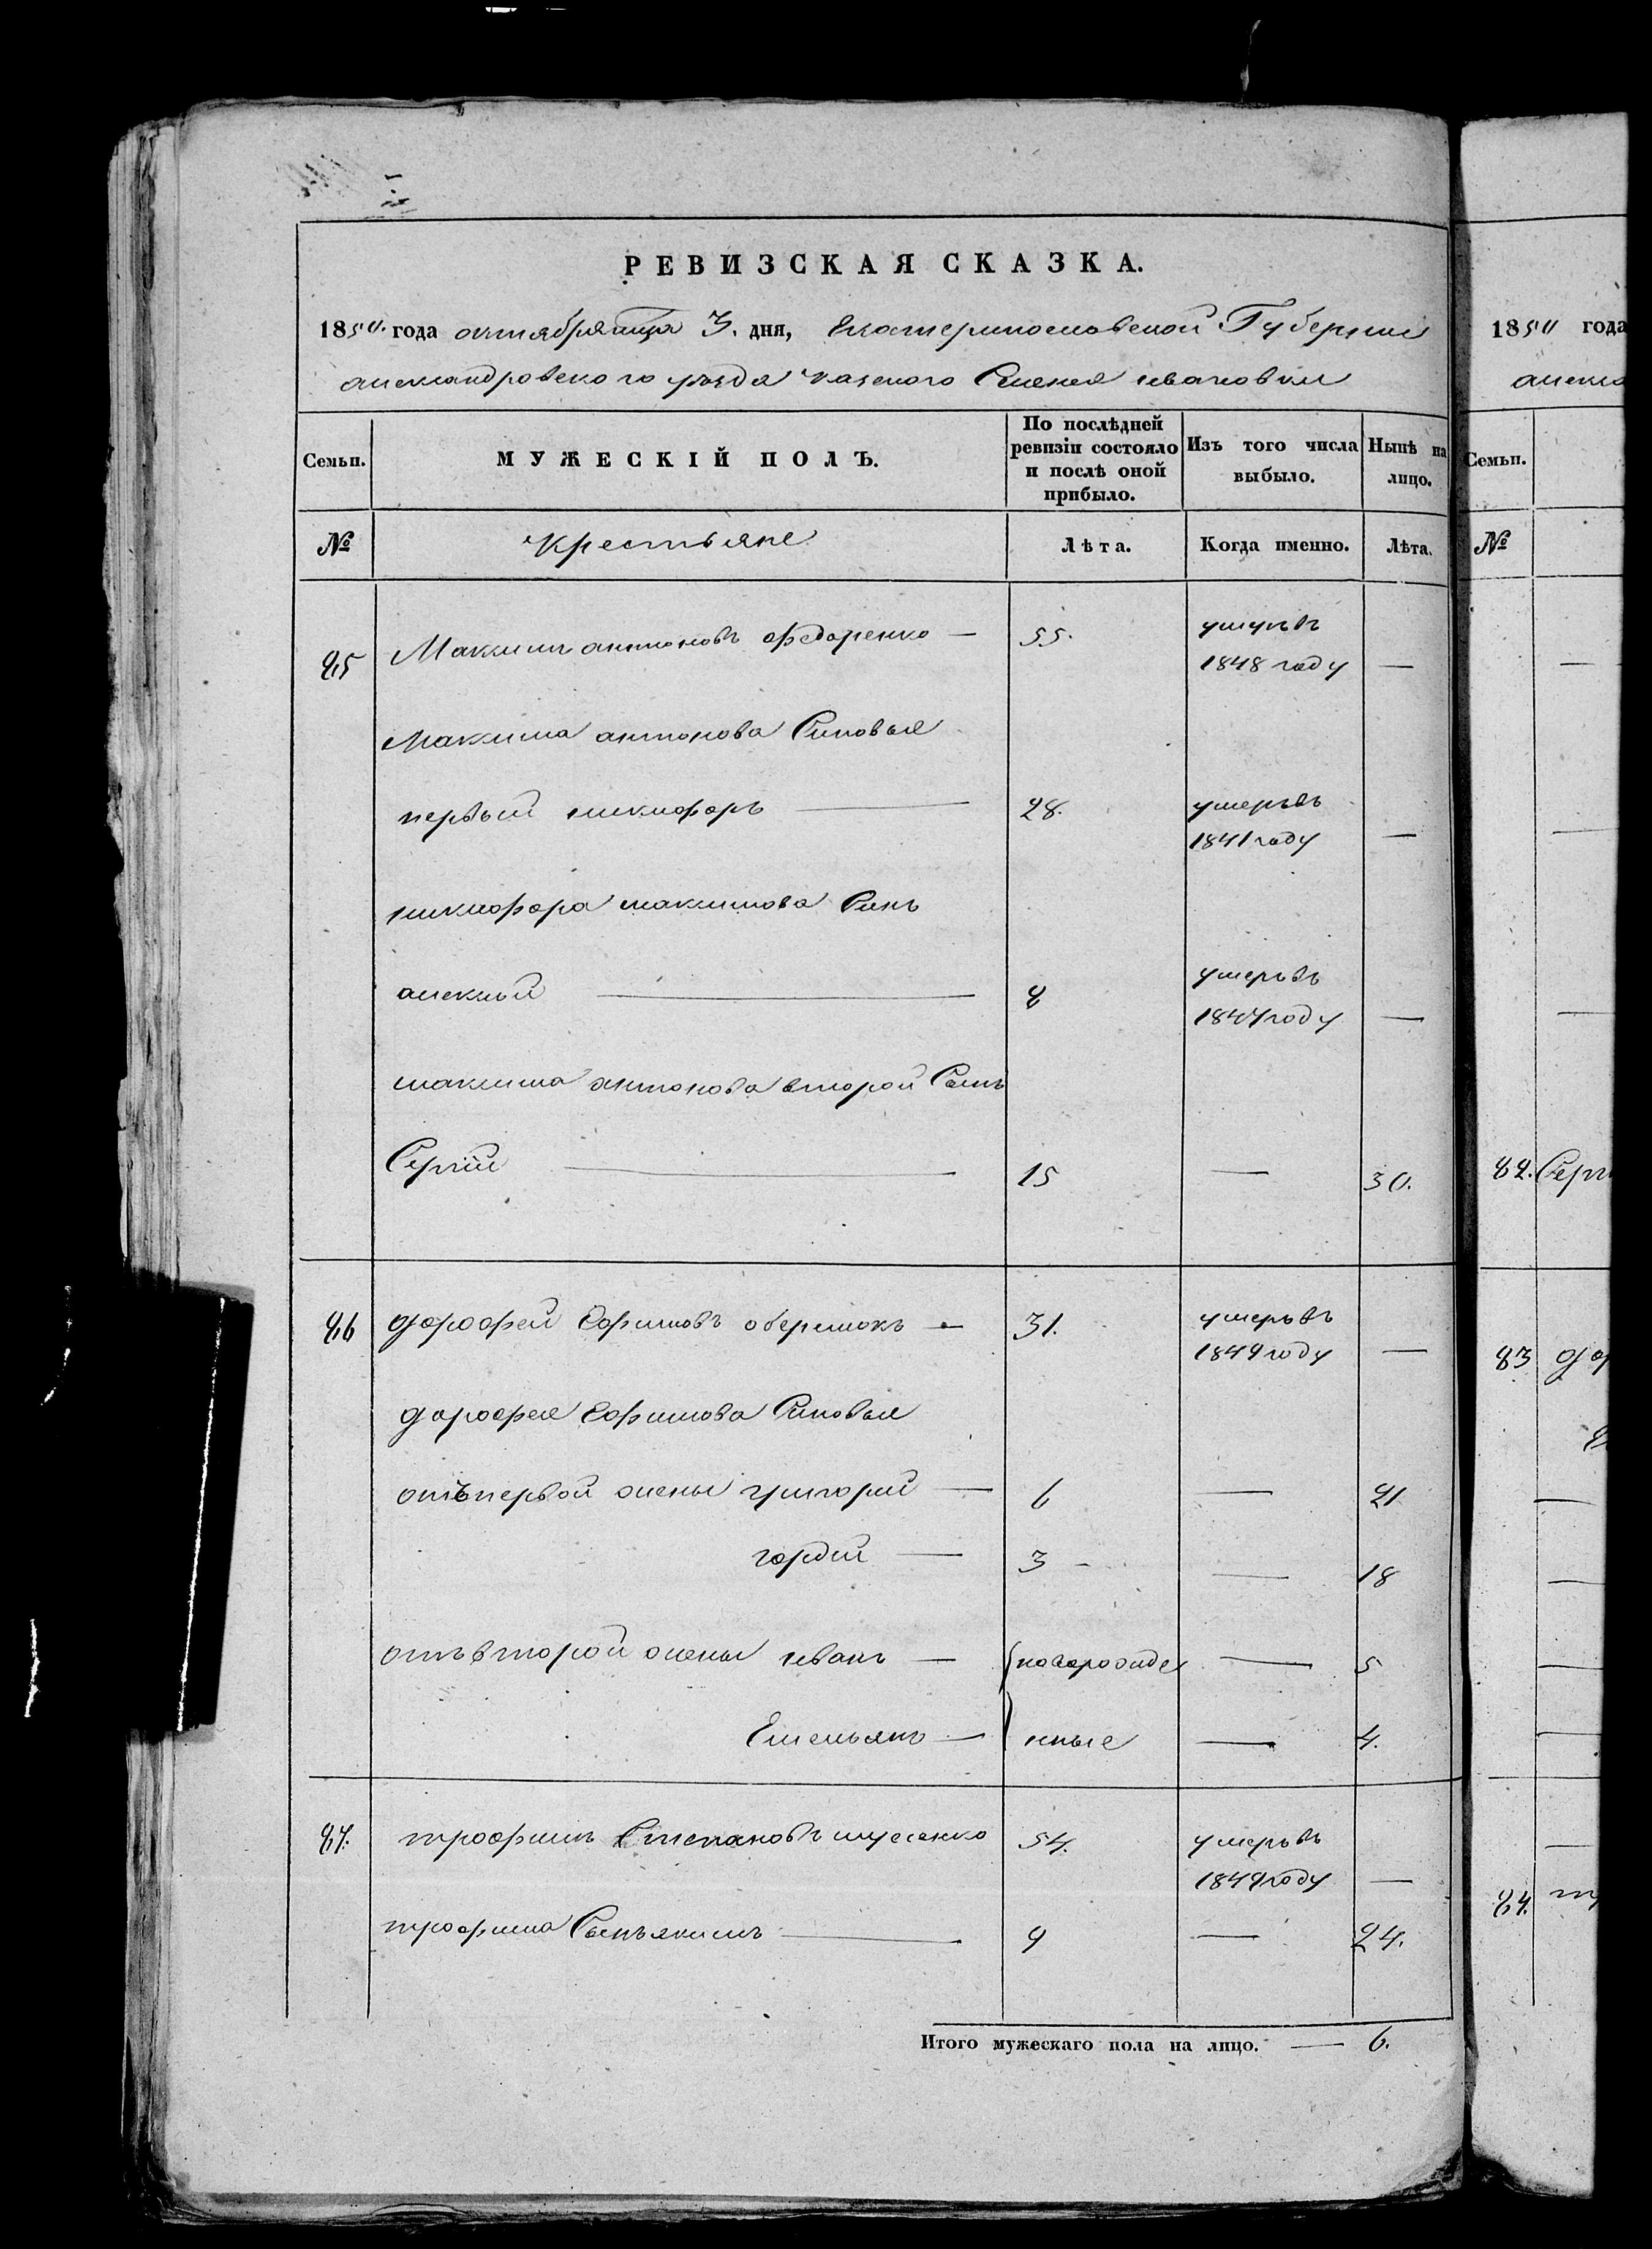 РЕВИЗСКАЯ СКАЗКА.
1850. года октября месяца 3. дня, Екатеринославской Губернии
александровского уезда казеного Селения ивановки
Семьи. МУЖЕСКІЙ ПОЛЪ. По послѣдней ревизіи состояло и послѣ оной прибыло. Изъ того числа выбыло. Нынѣ на лицо.
№ Крестьяне Лѣта. Когда именно. Лѣта.
85 Максим антоновъ федоренко — 55. умеръ въ
1848 году —
Максима антонова Синовья
первый никифоръ — 28. умеръ въ
1841 году —
никифора максимова Синъ
алексий — 8 умеръ въ
1847 году —
максима антонова второй Сынъ
Сергій — 15 — 30.
86 дорофей Ефимовъ оберемокъ — 31. умеръ въ
1849 году —
дорофея Ефимова Синовья
отъ первой жены григорий — 6 — 21
гордий — 3 — — 18
отъ второй жены иванъ — новорожде — 5
Емельянъ — нные — 4.
87. трофимъ Степановъ мусенко 54. умеръ въ
1849 году —
трофима Сынъ якимъ — 9 — 24.
Итого мужескаго пола на лицо. — 6.
1850 года
алекса
Семьи.
№
82. Серги
83 дор
84. тр